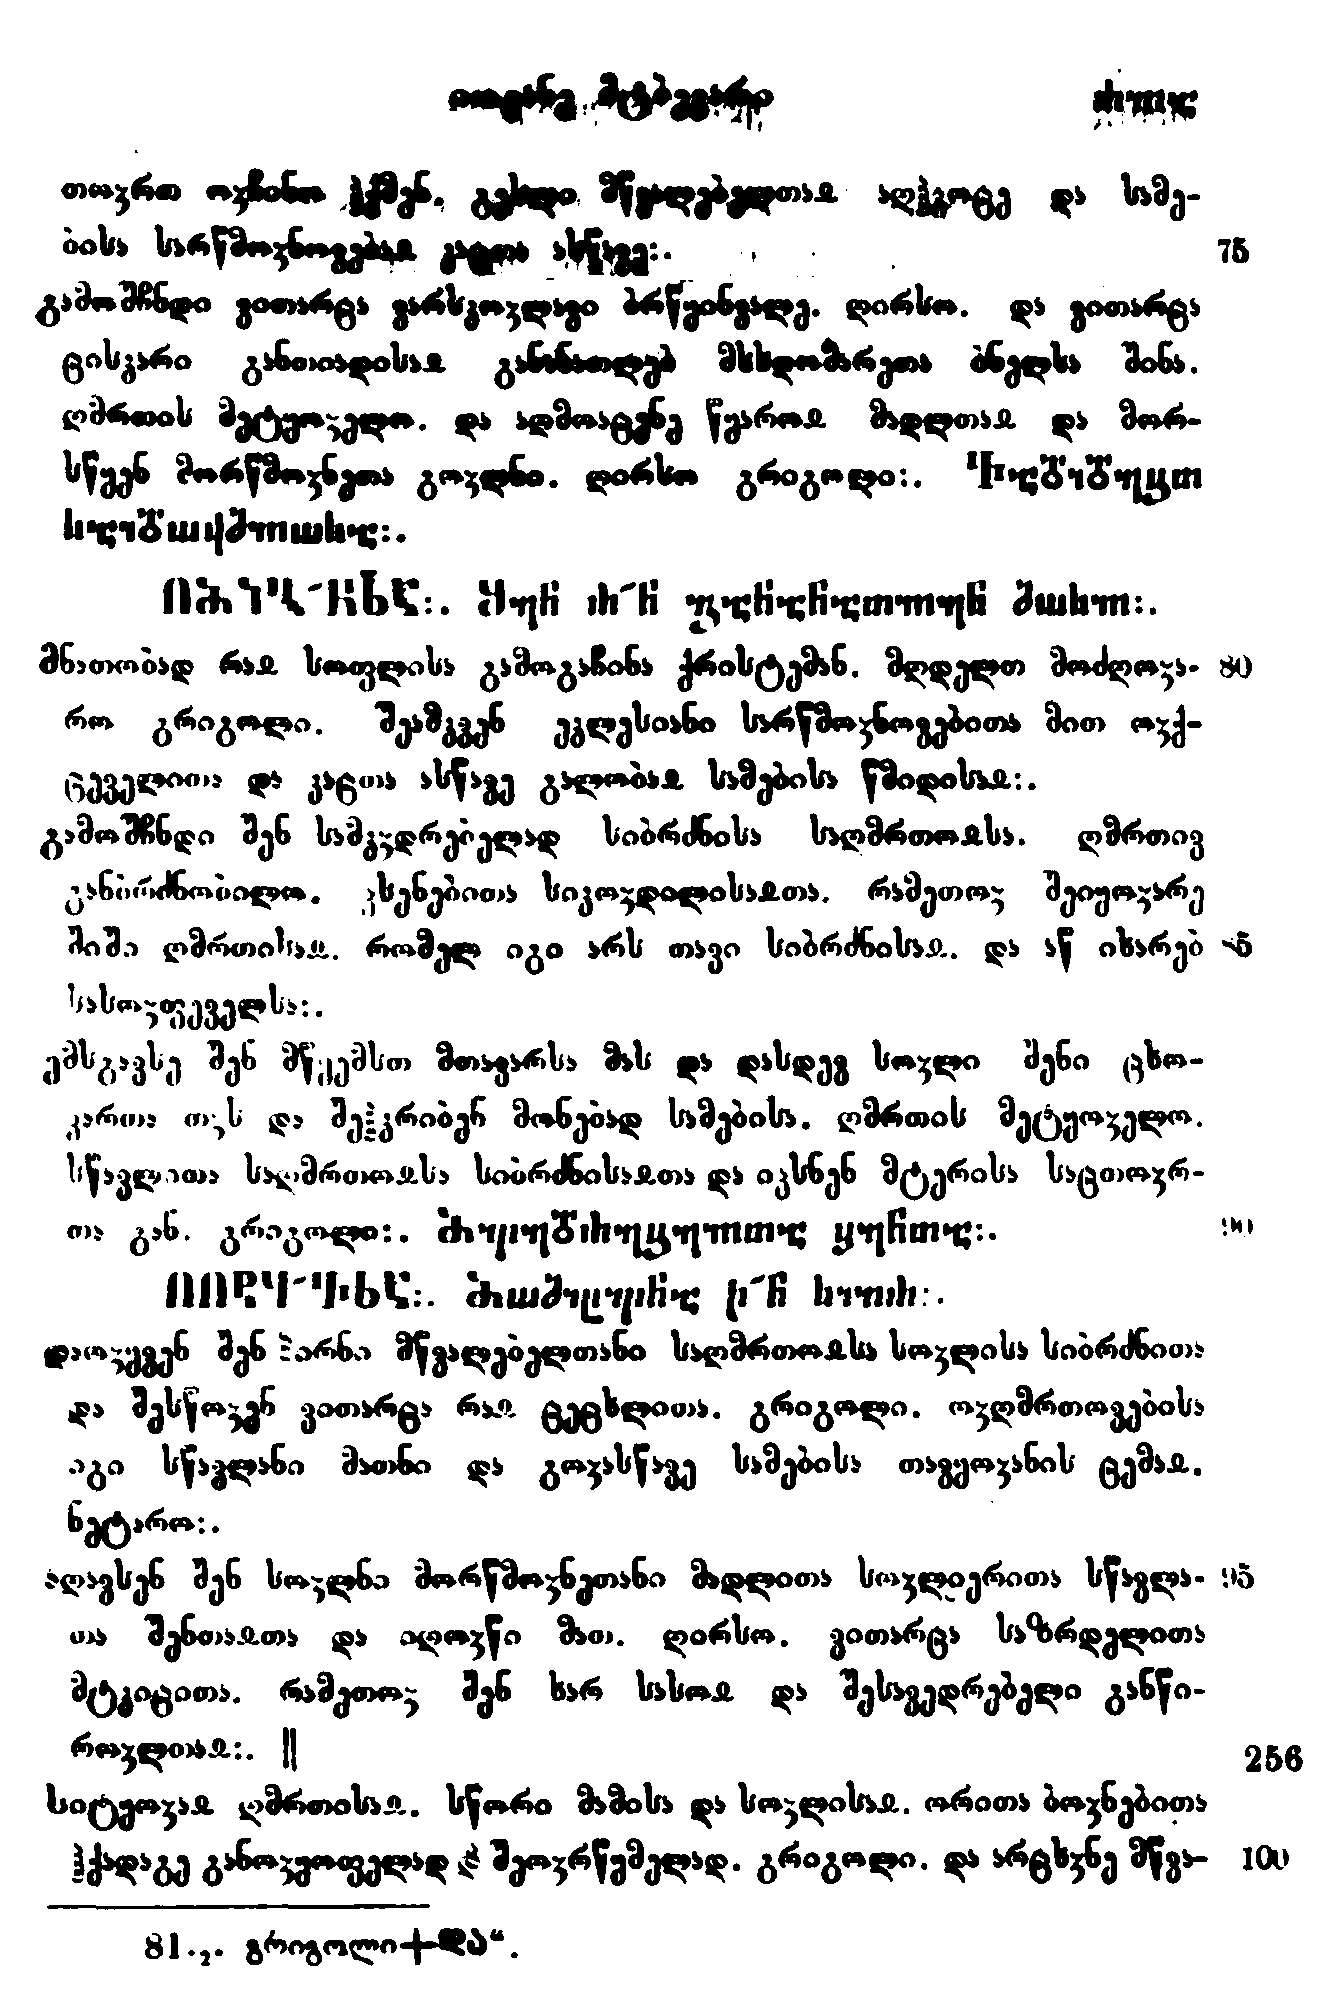 იოვანე მტბევარი
თოჳრთ ოჳჩინო ჰქმენ. გესლი მწვალებელთაჲ აღჰგოცე და სამე-
ბისა სარწმოჳნოვებაჲ კაცთა ასწავე:. 75
გამოშჩნდი ვითარცა ვარსკოჳლავი ბრწყინვალე. ღირსო. და ვითარცა
ცისკარი განთიადისაჲ განანათლებ მსხდომარეთა ბნელსა შინა.
ღმრთის მეტყოჳელო. და აღმოაცენე წყაროჲ მადლთაჲ და მორ-
სწყენ მორწმოჳნეთა გოჳლნი. ღირსო გრიგოლი:.
მნათობად რაჲ სოფლისა გამოგაჩინა ქრისტემან. მღდელთ მოძღოჳა- 80
რო გრიგოლი. შეამკვენ ეკლესიანი სარწმოჳნოვებითა მით ოჳქ-
ცეველითა და კაცთა ასწავე გალობაჲ სამებისა წმიდისაჲ:.
გამოშჩნდი შენ სამკჳდრებელად სიბრძნისა საღმრთოჲსა. ღმრთივ
განბრძნობილო. კსენებითა სიკოჳდილისაჲთა. რამეთოჳ შეიყოჳარე
შიში ღმრთისაჲ. რომელ იგი არს თავი სიბრძნისაჲ. და აწ იხარებ
სასოჳფეველსა:.
ემსგავსე შენ მწყემსთ მთავარსა მას და დასდევ სოჳლი შენი ცხო-
ვართა თჳს და შეჰკრიბენ მონებად სამებისა. ღმრთის მეტყოჳელო.
სწავლითა საღმრთოჲსა სიბრძნისაჲთა და იკსნენ მტერისა საცთოჳრ-
თა გან. გრიგოლი:. 90
დაოჳყვენ შენ ჰარნი მწვალებელთანი საღმრთოჲსა სოჳლისა სიბრძნითა
და შესწოჳენ ვითარცა რაჲ ცეცხლითა. გრიგოლი. ოჳღმრთოვებისა
იგი სწავლანი მათნი და გოჳასწავე სამებისა თავყოჳანის ცემაჲ.
ნეტარო:.
აღავსენ შენ სოჳლნი მორწმოჳნეთანი მადლითა სოჳლიერითა სწავლა- 95
თა შენთაჲთა და იღოჳწი მათ. ღირსო. ვითარცა საზრდელითა
მტკიცითა. რამეთოჳ შენ ხარ სასოჲ და შესავედრებელი განწი-
როჳლთაჲ:. || 256
სიტყოჳაჲ ღმრთისაჲ. სწორი მამისა და სოჳლისაჲ. ორითა ბოჳნებითა
ჰქადაგე განოჳყოფელად ჵ შეოჳრწყმელად. გრიგოლი. და არცხჳნე მწვა- 100
81.₂. გრიგოლი+და“.